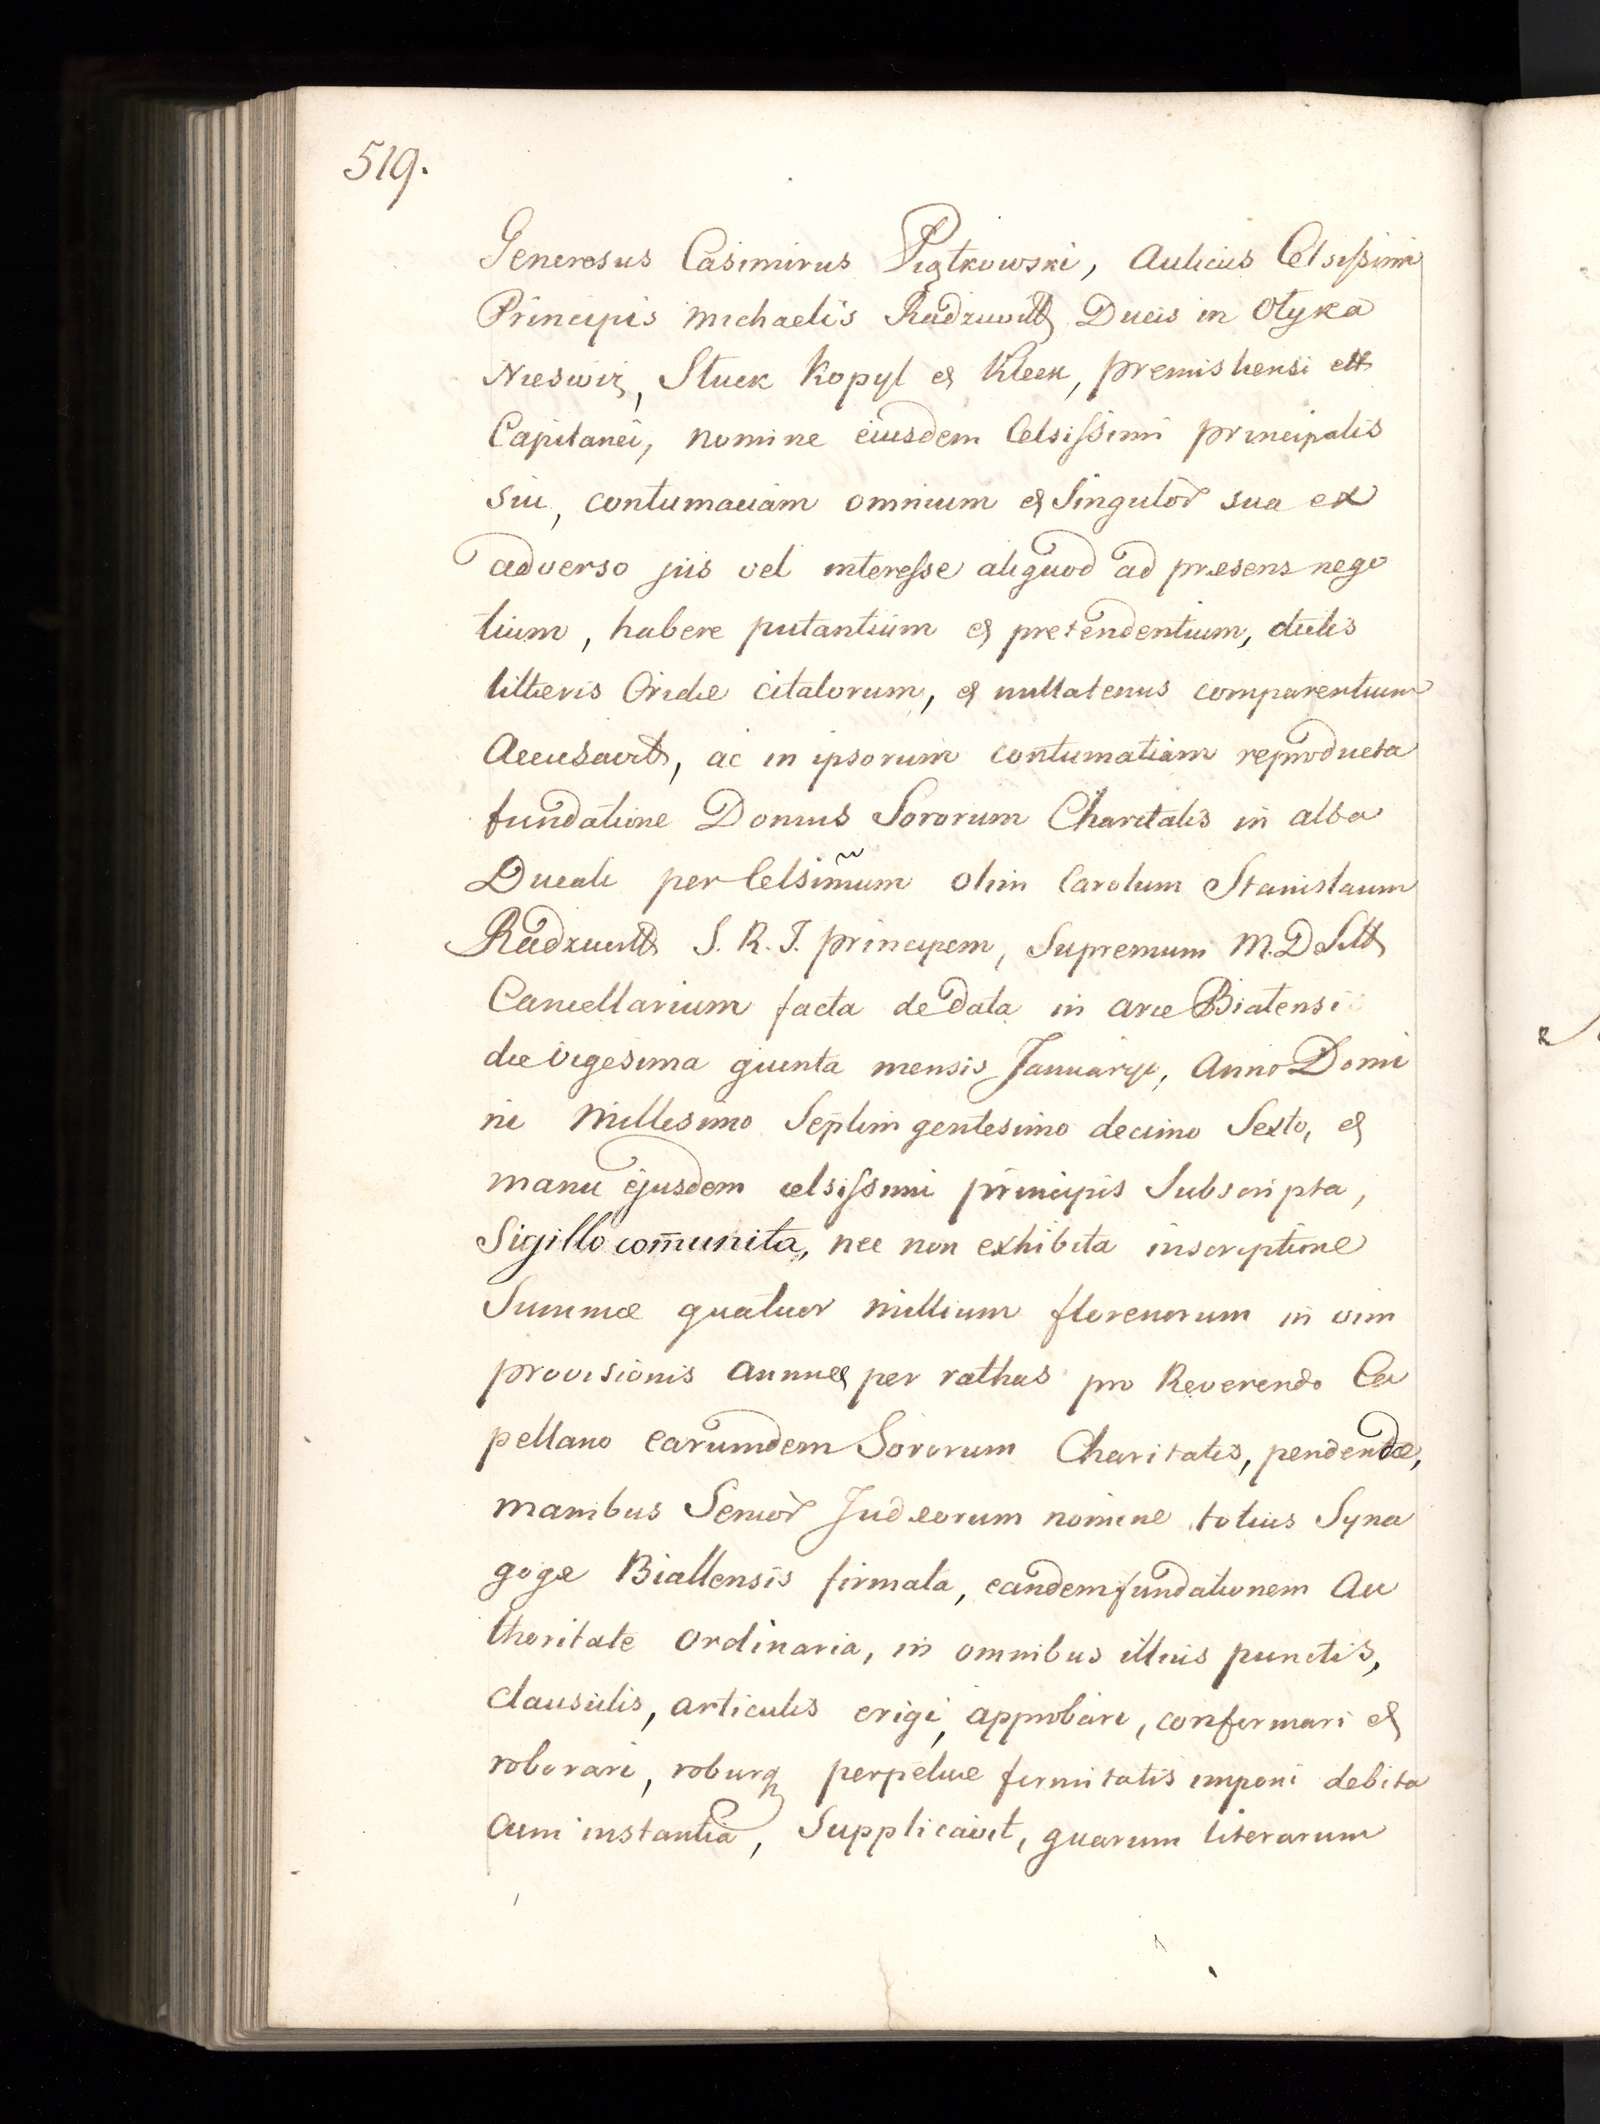 519.
Generosus Casimirus Piątkowski, Aulicus Celsissimi
Principis Michaelis Radziwill Ducis in Olyka
Nieswiz, Sluck Kopyl et Kleck, premisliensi etc
Capitanei, nomine eiusdem Celsissimi principalis
sui, contumaciam omnium et Singulor sua ex
adverso jus vel interesse aliquod ad præsens nego
tium, habere putantium et pretendentium, dictis
litteris citatorum, et nullatenus comparentium
Accusavit, ac in ipsorum contumatiam reproducta
fundatione Domus Sororum Charitatis in alba
Ducali per Celsim̃um olim Carolum Stanislaum
Radziwill S. R. I. principem, Supremum M. D Litt
Cancellarium facta de data in arce Bialensi
die vigesima quinta mensis Januarije, Anno Domi
ni Millesimo Septin gentesimo decimo Sexto, et
manu ejusdem celsissimi principis Subscripta,
Sigillo com̄unita, nec non exhibita inscriptione
Summæ quatuor millium florenorum in vim
provisionis annuæ per rathas pro Reverendo Ca
pellano earumdem Sororum Charitatis, pendendæ,
manibus Senior Judæorum nomine totius Syna
gogæ Biallensis firmata, eandem fundationem Au
thoritate ordinaria, in omnibus illius punctis,
clausulis, articulis erigi, approbari, confirmari et
roborari, roburq perpetuæ firmitatis imponi debita
cum instantia, Supplicavit, quarum literarum